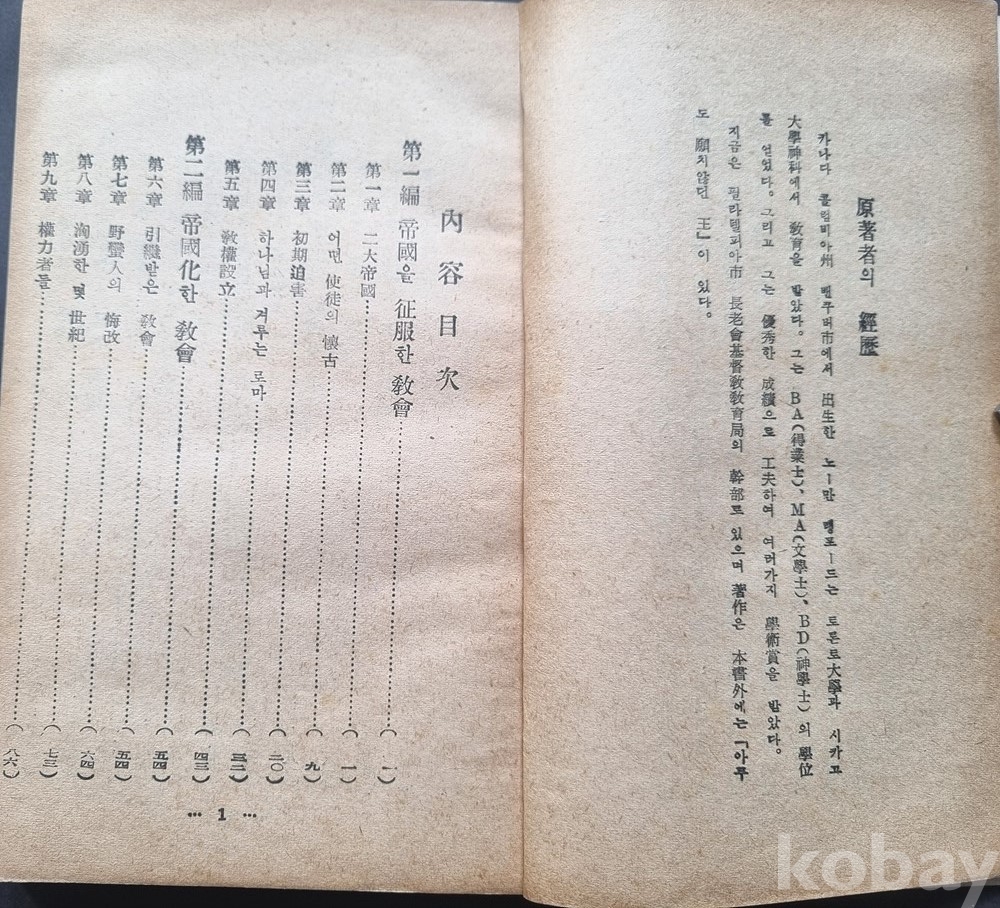 原著者의 經歷
카나다 콜럼비아州 밴쿠버市에서 出生한 노ー만 랭포ー드는 토론토大學과 시카고
大學神科에서 敎育을 받았다。그는 BA(得業士)、MA(文學士)、BD(神學士)의 學位
를 얻었다。그리고 그는 優秀한 成績으로 工夫하여 여러가지 學術賞을 받았다。
지금은 필라델피아市 長老會基督敎敎育局의 幹部로 있으며 著作은 本書外에는「아무
도 願치않던 王」이 있다。
內容目次
第一編 帝國을 征服한 敎會………(一)
第一章 二大帝國………(一)
第二章 어떤 使徒의 懷古………(九)
第三章 初期迫害………(二〇)
第四章 하나님과 겨루는 로마………(三二)
第五章 敎權設立………(四三)
第二編 帝國化한 敎會………(五四)
第六章 引繼받은 敎會………(五四)
第七章 野蠻人의 悔改………(六四)
第八章 洶湧한 몇 世紀………(七三)
第九章 權力者들………(八六)
… 1 …
kobay